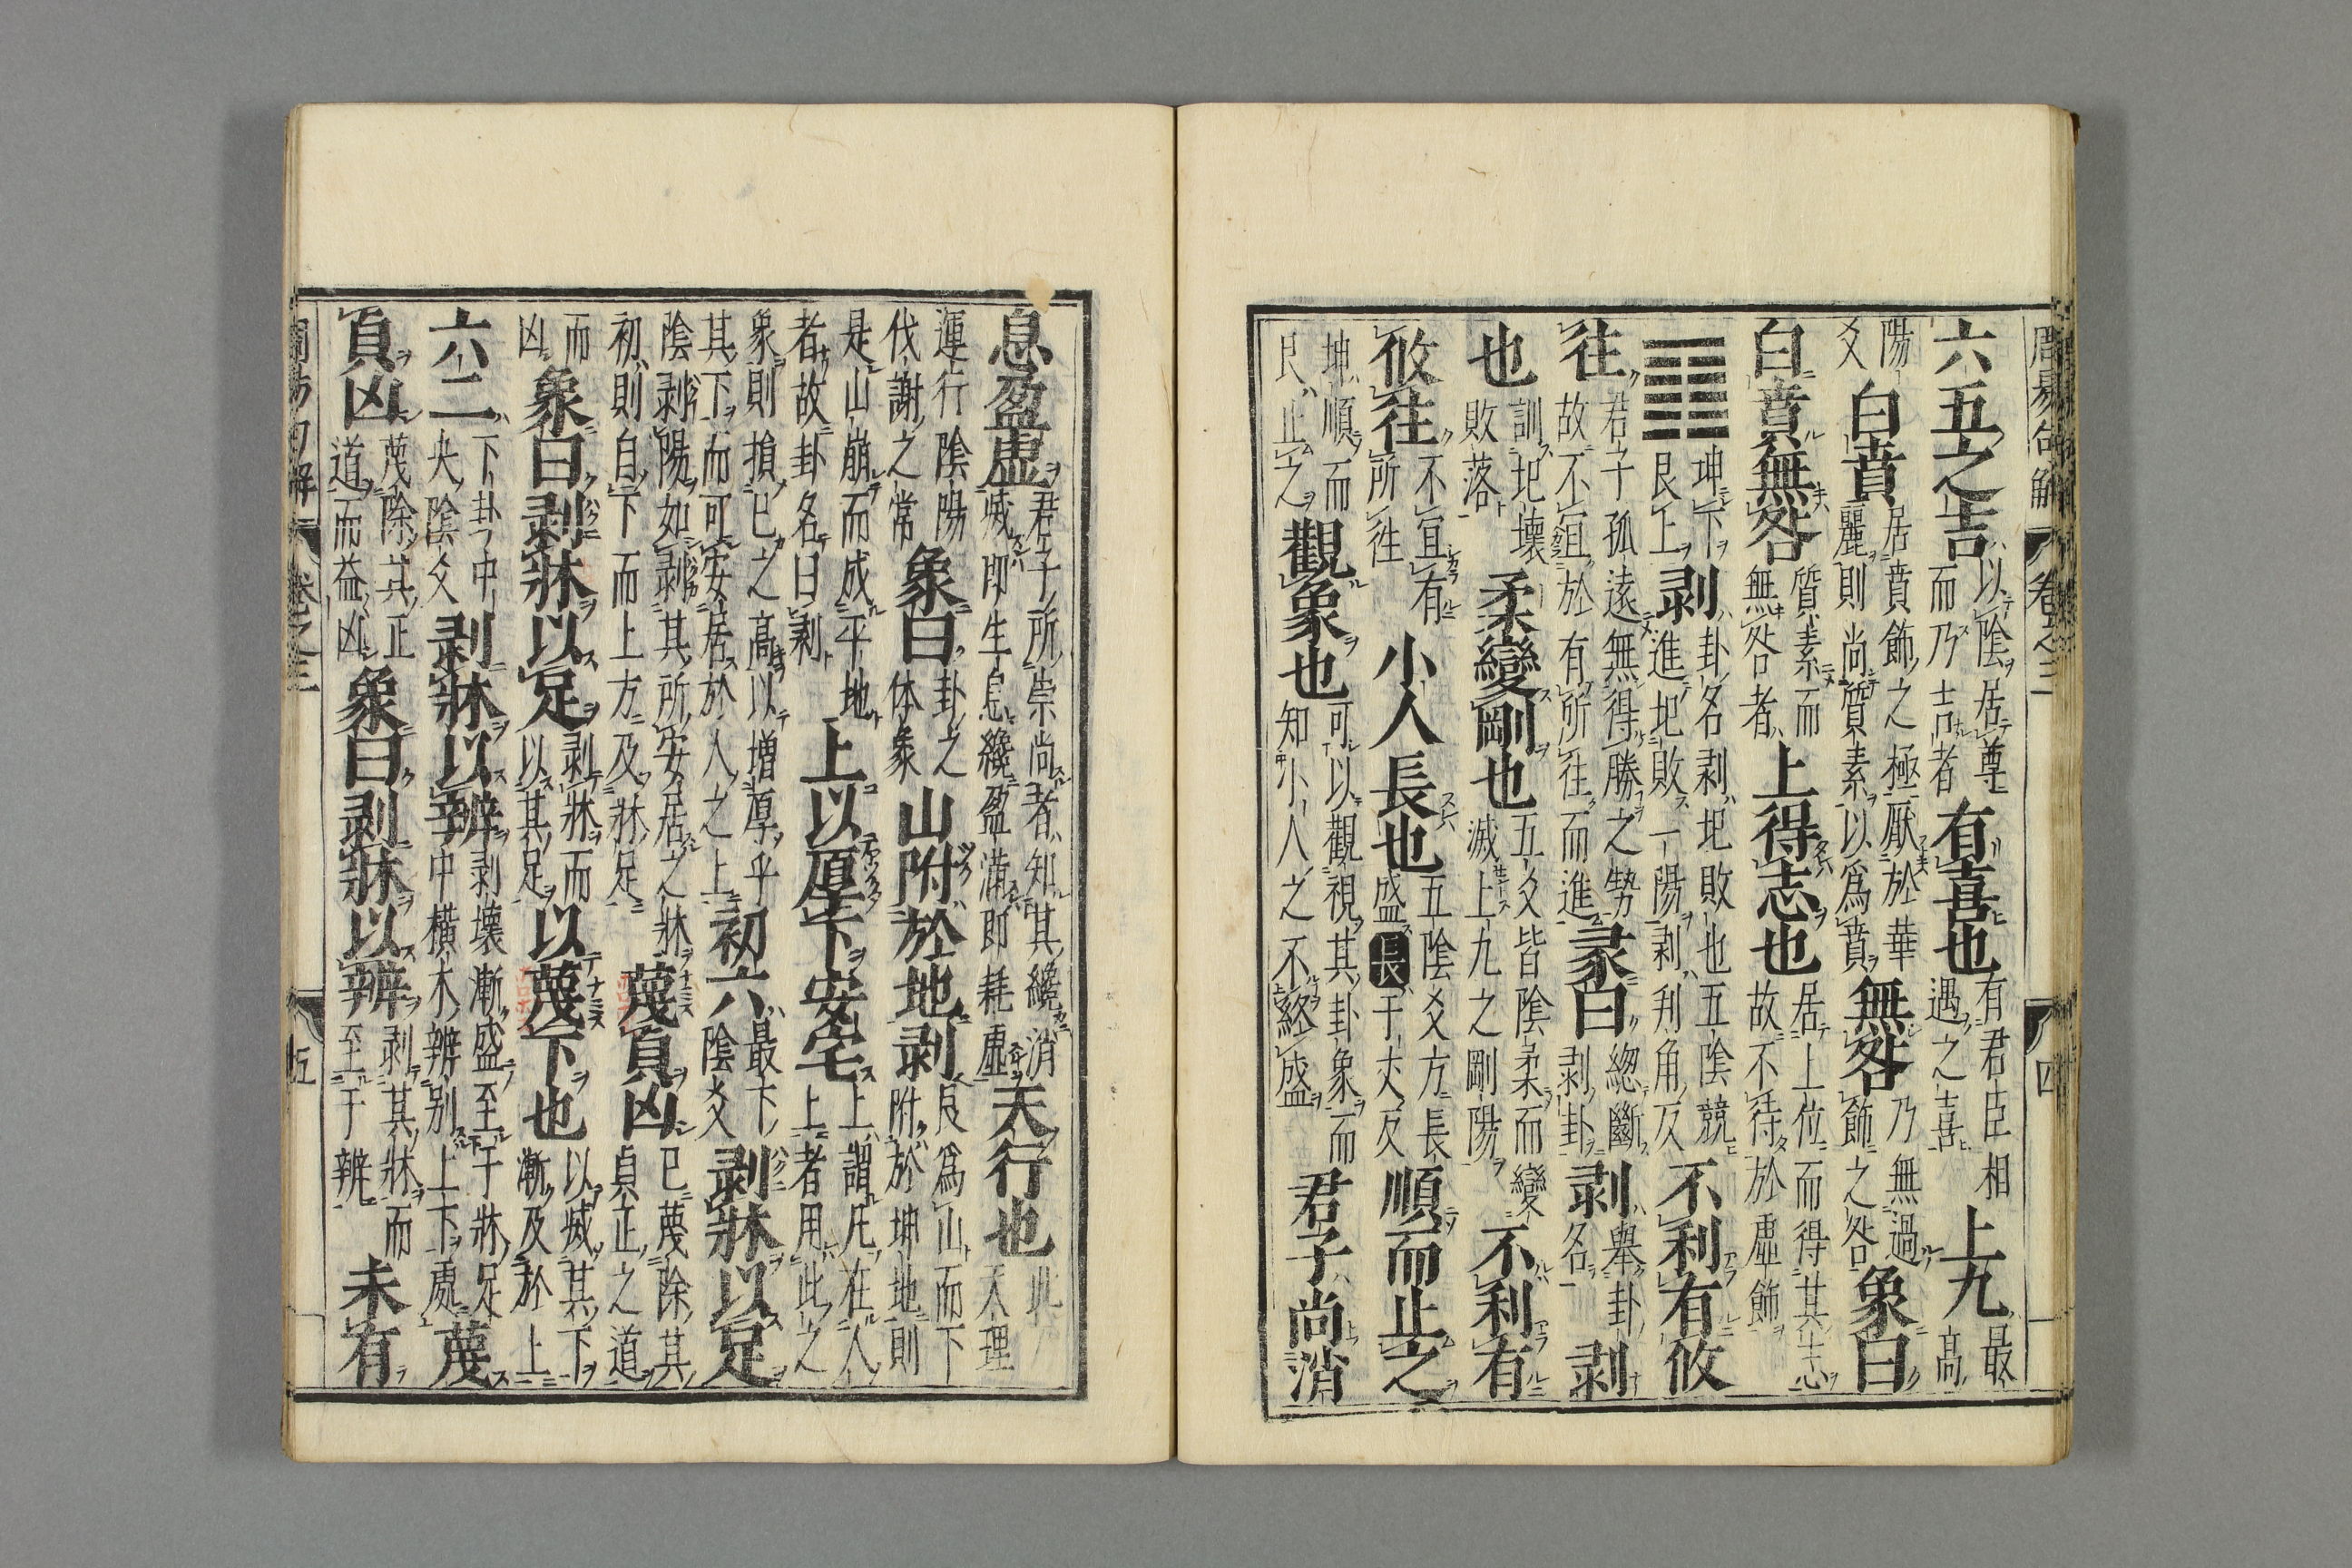 周易句解 卷之三 四
六五之吉以陰居尊而乃吉者有喜也有君臣相遇之喜上九最高
陽爻白賁居賁飾之極厭於華麗則尚質素以爲賁無咎乃無過飾之咎象曰
白賁無咎質素而無咎者上得志也居上位而得其志故不待於虛飾
䷖坤下艮上剥卦名剥圯敗也五陰競進圯敗一陽剥刋角反不利有攸
往君子孤遠無得勝之勢故不宜於有所往而進彖曰緫斷剥卦剥舉卦名剥
也訓圯壞敗落柔變剛也五爻皆陰柔而變滅上九之剛陽不利有
攸往不宜有所往小人長也五陰爻方長盛長于丈反順而止之
坤順而艮止之觀象也可以觀視其卦象而知小人之不終盛君子尚消
息盈虛君子所崇尚者知其纔消㓕即生息纔盈滿即耗虛天行也此天理
運行陰陽代謝之常象曰卦之体象山附於地剥艮爲山而下附於坤地則
是山崩而成平地者故卦名曰剥上以厚下安宅上謂凡在人上者用此之
象則損己之高以增厚乎其下而可安居於人之上初六最下陰爻剥牀以足
陰剥陽如剥其所安居之牀初則自下而上方及牀足蔑貞凶已蔑除其貞正之道
而凶象曰剥牀以足剥牀而以其足以蔑下也以滅其下漸及於上
六二下卦中央陰爻剥牀以辨剥壞漸盛至于牀足中橫木辨别上下處蔑
貞凶蔑除其正道而益凶象曰剥牀以辨剥其牀而至于辨未有
周易句解 卷之三 五